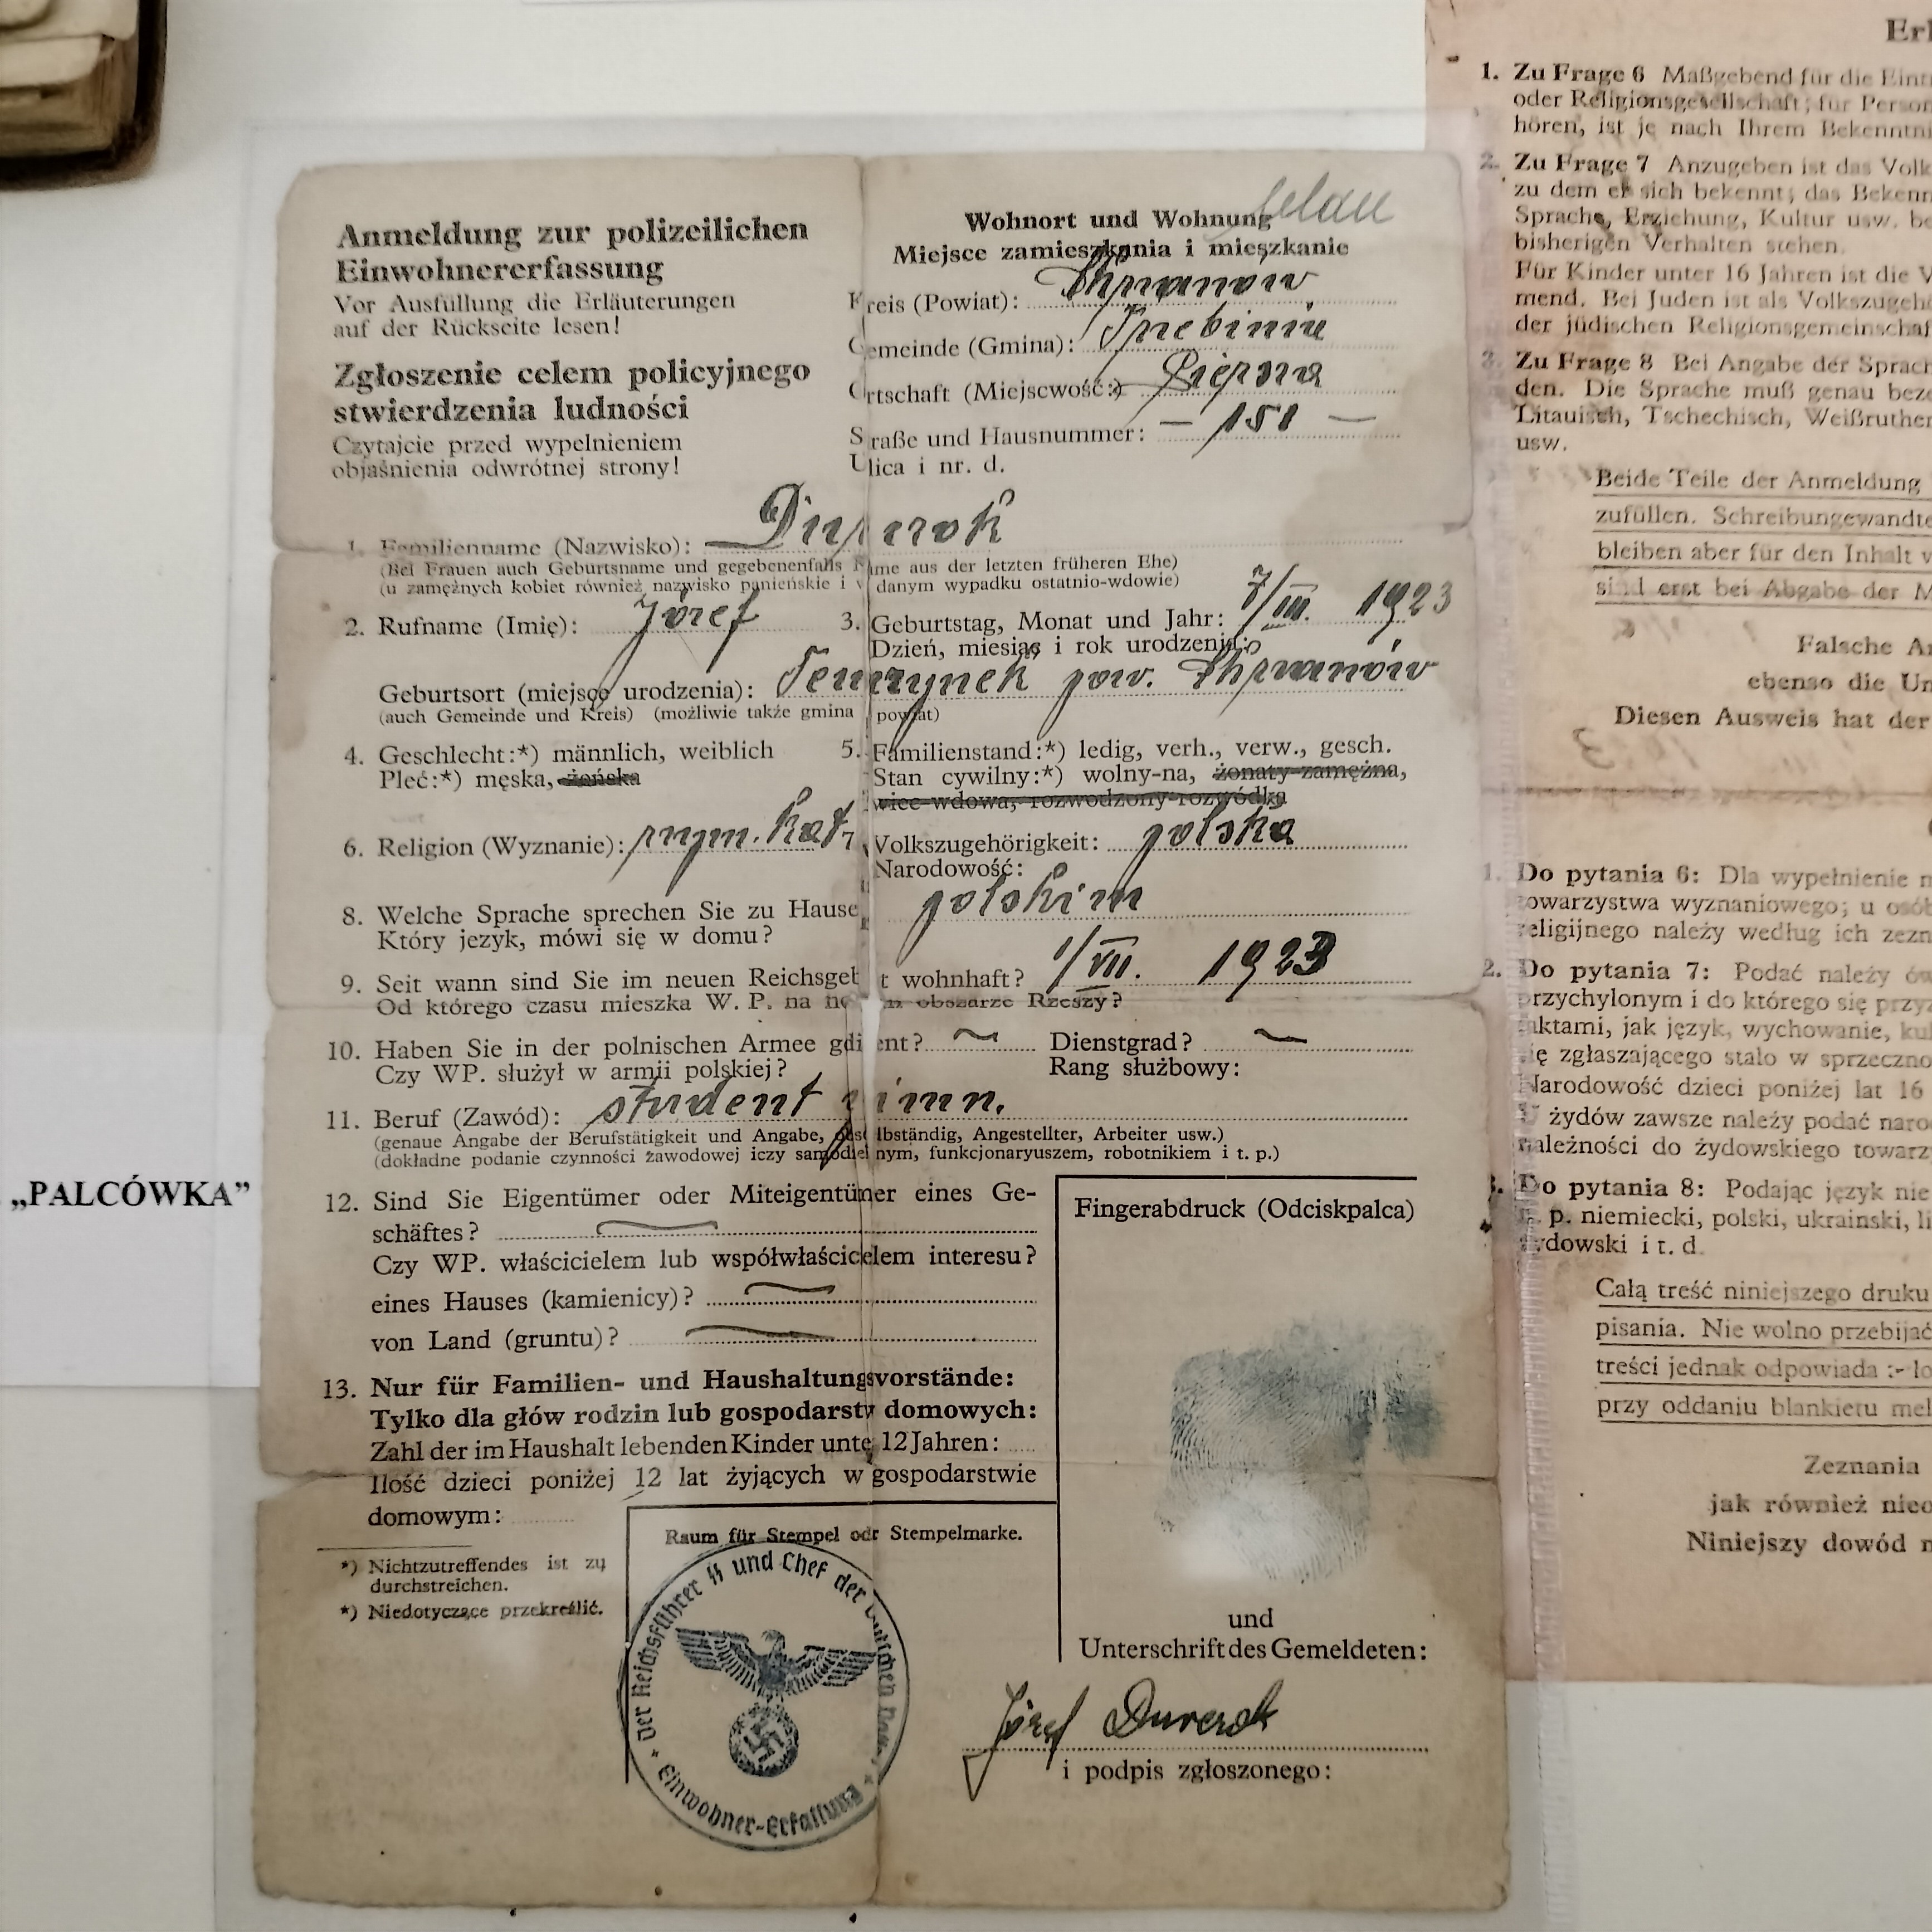 Anmeldung zur polizeilichen
Einwohnererfassung
Vor Ausfüllung die Erläuterungen
auf der Rückseite lesen!
Zgłoszenie celem policyjnego
stwierdzenia ludności
Czytajcie przed wypełnieniem
objaśnienia odwrótnej strony!
Wohnort und Wohnung
Miejsce zamieszkania i mieszkanie
Kreis (Powiat): Chrzanów
Gemeinde (Gmina): Trzebinia
Ortschaft (Miejscwość:)
Straße und Hausnummer: — 151 —
Ulica i nr. d.
1. Familienname (Nazwisko):
(Bei Frauen auch Geburtsname und gegebenenfalls Name aus der letzten früheren Ehe)
(u zamężnych kobiet również nazwisko panieńskie i w danym wypadku ostatnio-wdowie)
2. Rufname (Imię): Józef
3. Geburtstag, Monat und Jahr: 7/III. 1923
Dzień, miesiąc i rok urodzenia:
Geburtsort (miejsce urodzenia): Tenczynek pow. Chrzanów
(auch Gemeinde und Kreis) (możliwie także gmina powiat)
4. Geschlecht:*) männlich, weiblich
Płeć:*) męska, żeńska
5. Familienstand:*) ledig, verh., verw., gesch.
Stan cywilny:*) wolny-na, żonaty-zamężna,
wice-wdowa, rozwodzony-rozwódka
6. Religion (Wyznanie): rzym. kat.
7. Volkszugehörigkeit: polska
Narodowość:
8. Welche Sprache sprechen Sie zu Hause polskim
Który jezyk, mówi się w domu?
9. Seit wann sind Sie im neuen Reichsgebiet wohnhaft? 1/VII. 1923
Od którego czasu mieszka W. P. na nowem obszarze Rzeszy?
10. Haben Sie in der polnischen Armee gdient? Dienstgrad?
Czy WP. służył w armii polskiej? Rang służbowy:
11. Beruf (Zawód): student gimn.
(genaue Angabe der Berufstätigkeit und Angabe, selbständig, Angestellter, Arbeiter usw.)
(dokładne podanie czynności żawodowej iczy samodzielnym, funkcjonaryuszem, robotnikiem i t. p.)
12. Sind Sie Eigentümer oder Miteigentümer eines Ge-
schäftes?
Czy WP. właścicielem lub współwłaścicelem interesu?
eines Hauses (kamienicy)?
von Land (gruntu)?
13. Nur für Familien- und Haushaltungsvorstände:
Tylko dla głów rodzin lub gospodarstw domowych:
Zahl der im Haushalt lebenden Kinder unter 12 Jahren:
Ilość dzieci poniżej 12 lat żyjących w gospodarstwie
domowym:
*) Nichtzutreffendes ist zu
durchstreichen.
*) Niedotyczące przekreślić.
Raum für Stempel odr Stempelmarke.
Der Reichsführer SS und Chef der Deutschen
Einwohner-Erfassung
Fingerabdruck (Odciskpalca)
und
Unterschrift des Gemeldeten:
Józef
i podpis zgłoszonego:
„PALCÓWKA”
1. Zu Frage 6 Maßgebend für die
oder Religionsgesellschaft; für
hören, ist je nach Ihrem
2. Zu Frage 7 Anzugeben ist das
zu dem er sich bekennt; das
Sprache, Erziehung, Kultur usw.
bisherigen Verhalten stehen.
Für Kinder unter 16 Jahren ist die
mend. Bei Juden ist als
der jüdischen
3. Zu Frage 8 Bei Angabe der
den. Die Sprache muß genau
Litauisch, Tschechisch,
usw.
Beide Teile der Anmeldung
zufüllen.
bleiben aber für den Inhalt
sind erst bei Abgabe der
Falsche
ebenso die
Diesen Ausweis hat der
1. Do pytania 6: Dla wypełnienie
towarzystwa wyznaniowego; u
religijnego należy według ich
2. Do pytania 7: Podać należy
przychylonym i do którego się
faktami, jak język, wychowanie,
się zgłaszającego stalo w
Narodowość dzieci poniżej lat 16
U żydów zawsze należy podać
należności do żydowskiego
3. Do pytania 8: Podając język
n. p. niemiecki, polski, ukrainski,
żydowski i t. d.
Całą treść niniejszego druku
pisania. Nie wolno przebijać
treści jednak odpowiada :-
przy oddaniu blankietu
Zeznania
jak również
Niniejszy dowód